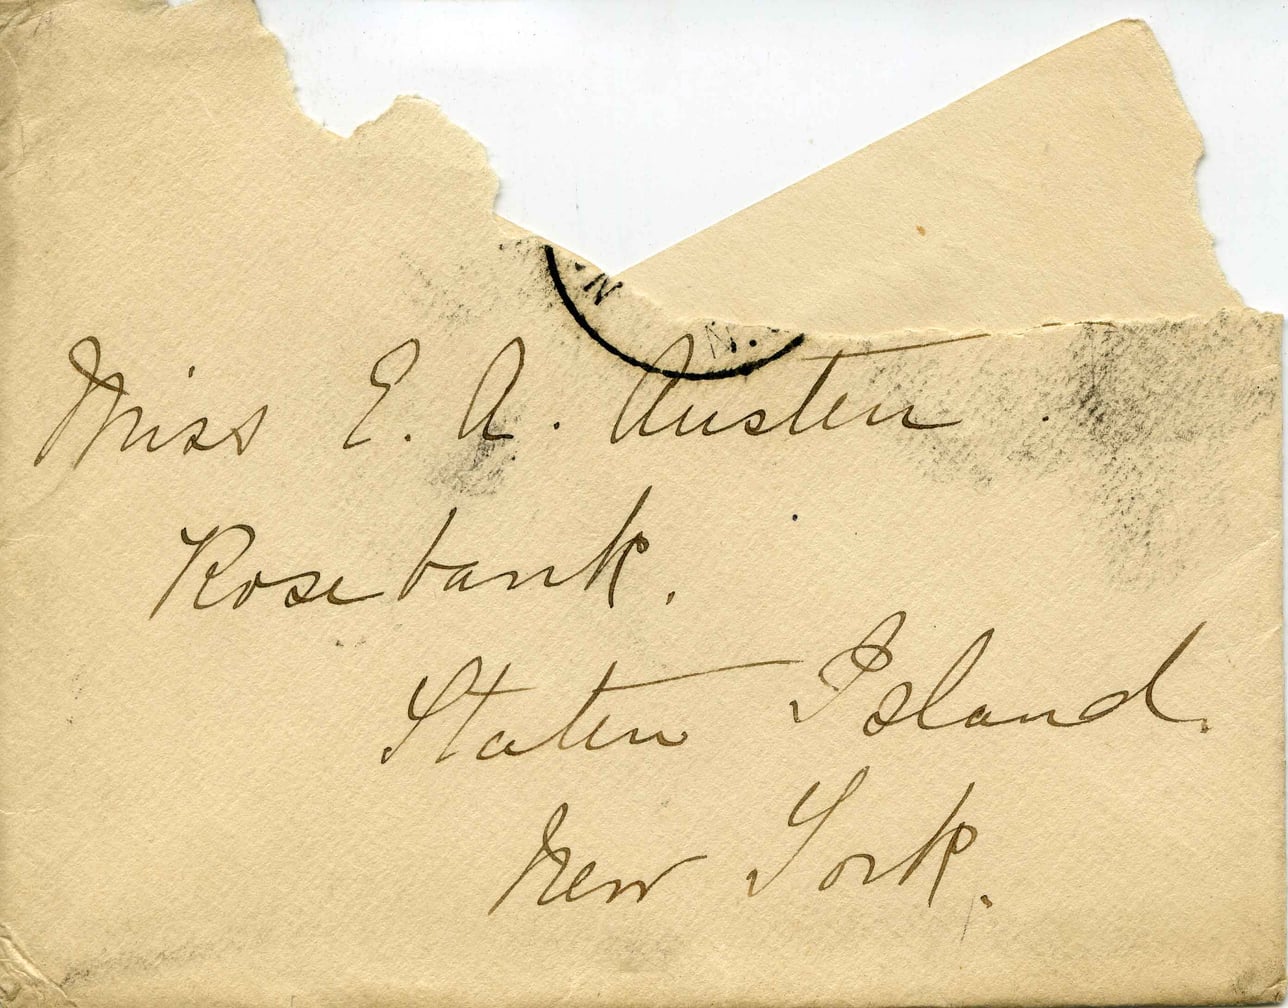 N. N.
Miss E. A. Austen
Rosebank.
Staten Island.
New York.